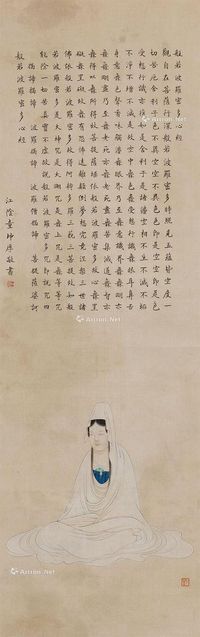 般若波羅蜜多心經
觀自在菩薩行深般若波羅蜜多時照見五蘊皆空度一
切苦厄舍利子色不異空空不異色色即是空空即是色
受想行識亦復如是舍利子是諸法空相不生不滅不垢
不淨不增不減是故空中無色無受想行識無眼耳鼻舌
身意無色聲香味觸法無眼界乃至無意識界無無明亦
無無明盡乃至無老死亦無老死盡無苦集滅道無智亦
無得以無所得故菩提薩埵依般若波羅蜜多故心無罣
礙無罣礙故無有恐怖遠離顛倒夢想究竟涅槃三世諸
佛依般若波羅蜜多故得阿耨多羅三藐三菩提故知般
若波羅蜜多是大神咒是大明咒是無上咒是無等等咒
能除一切苦真實不虛故說般若波羅蜜多咒即說咒曰
揭諦揭諦 波羅揭諦 波羅僧揭諦 菩提薩婆訶
般若波羅蜜多心經
江陰 敬書
Artron.Net
Artron.Net